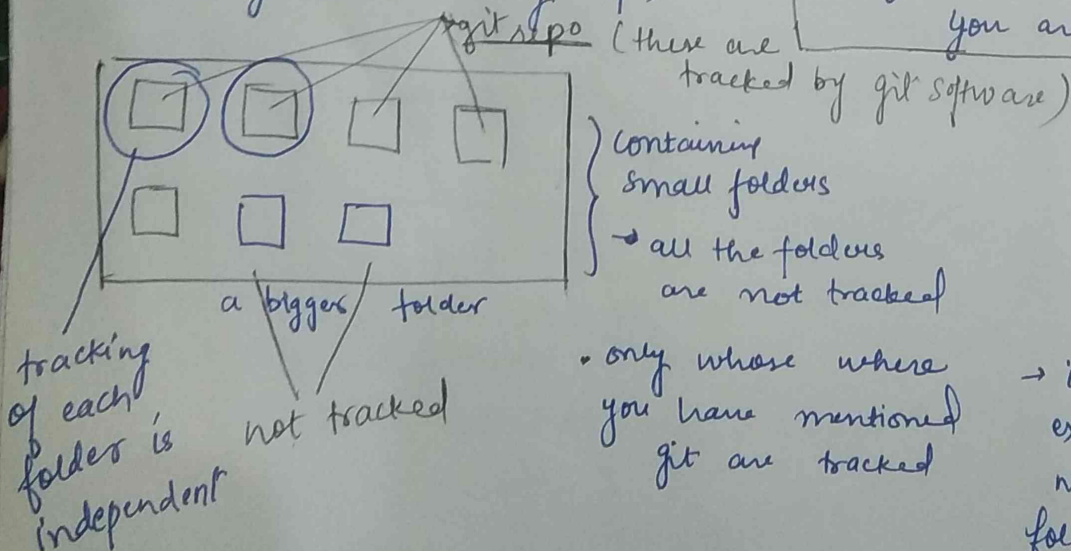 git repo (these are
tracked by git software)
you
containing
small folders
→ all the folders
are not tracked
a bigger folder
tracking
of each
folder is
independent
not tracked
• only whose where
you have mentioned
git are tracked
→